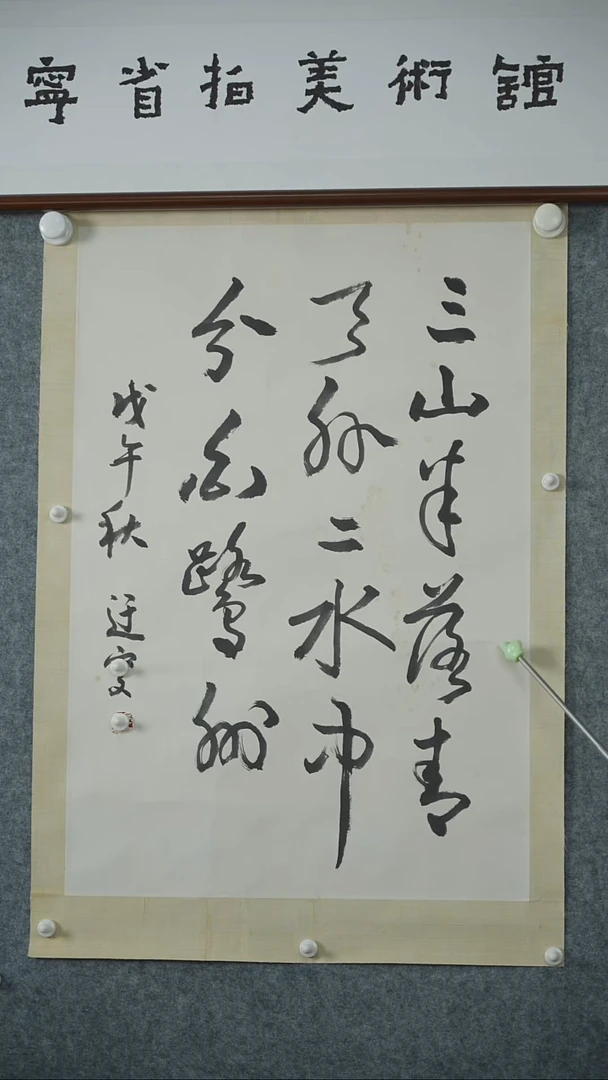 寧省拍美術館
三山半落青
天外二水中
分白鷺洲
戊午秋 迂叟